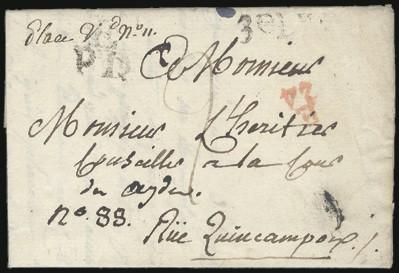 Place Vd. No. 11.
P.P.
A Monsieur
Monsieur L'heritier
Conseiller a la Cour
des aydes.
no. 88.
Rüe Quincampoix ·/·